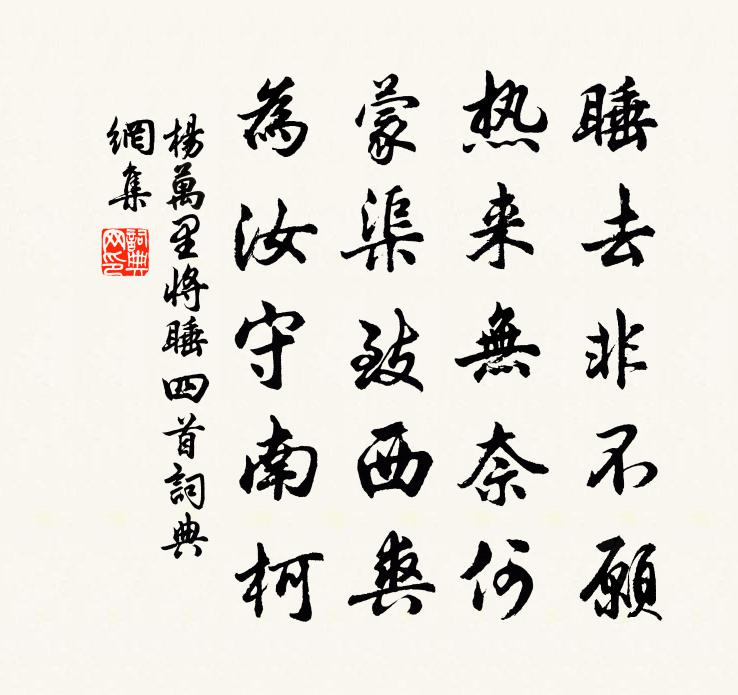 睡去非不願
热来無奈何
蒙渠致西爽
為汝守南柯
楊萬里將睡四首詞典
網集
詞典
网印